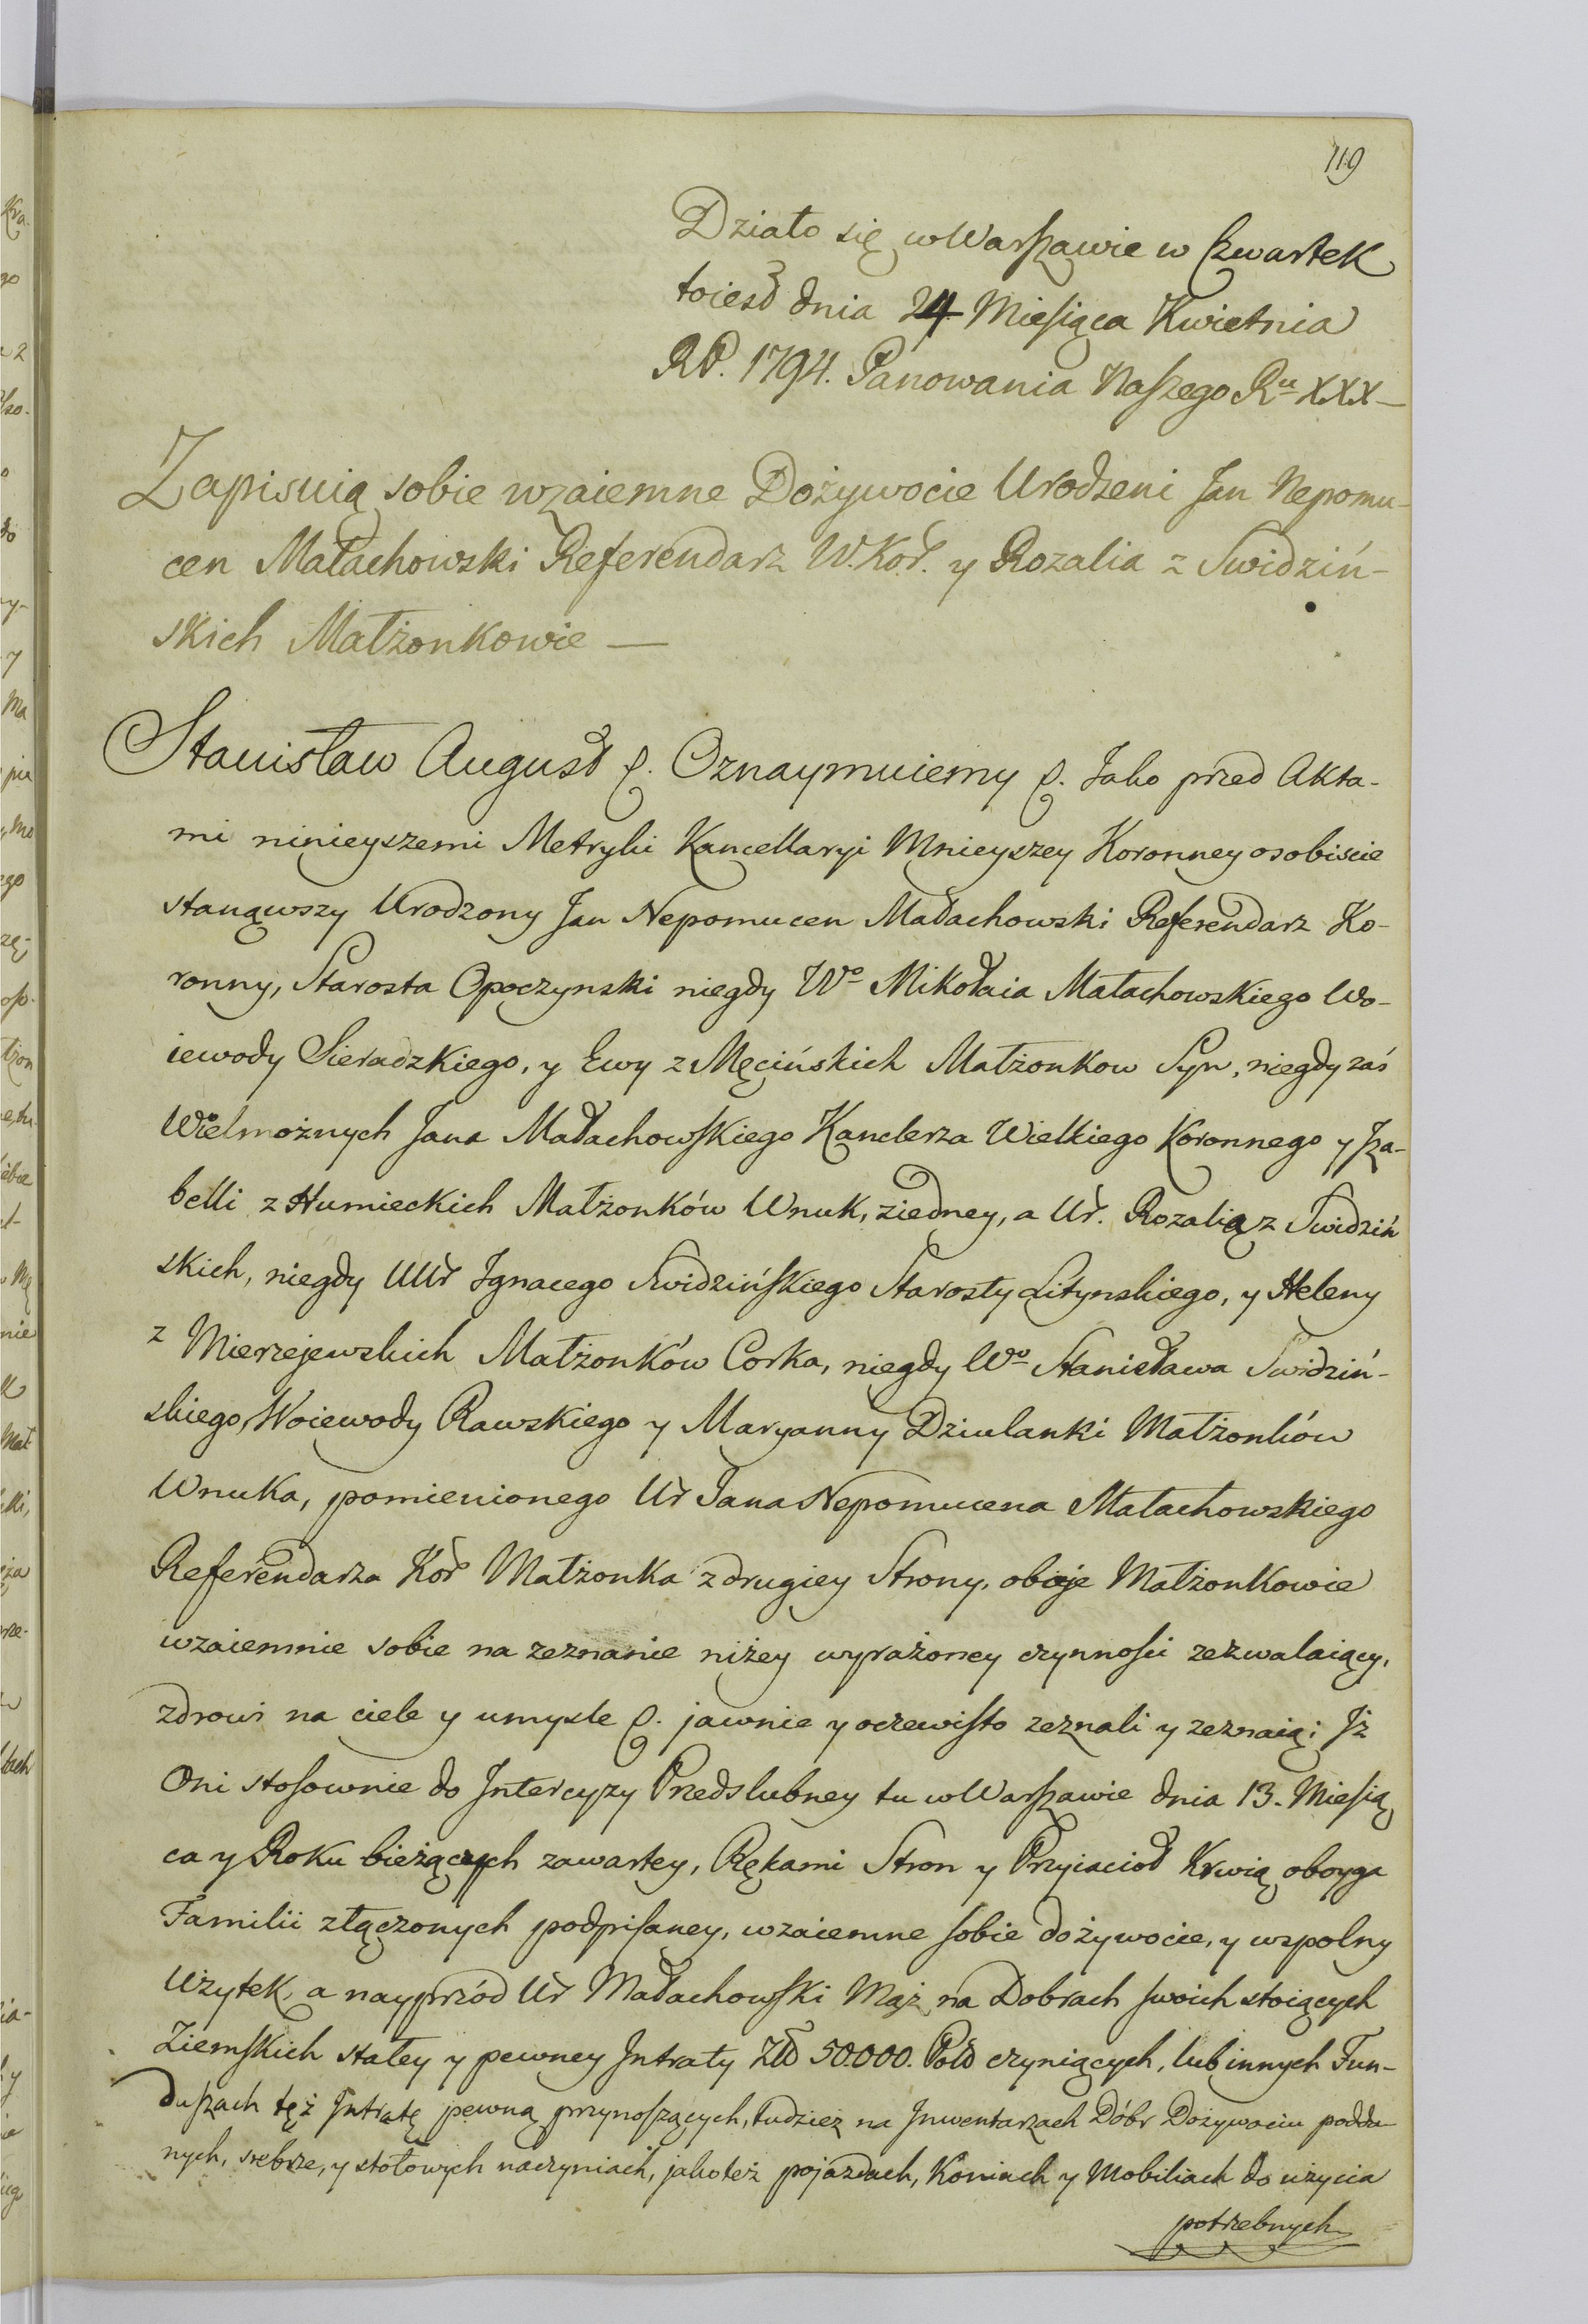 119
Działo się w Warszawie w Czwartek
toiest dnia 24 Miesiąca Kwietnia
RP. 1794. Panowania Naszego Ru XXX —
Zapisuią sobie wzaiemne Dożywocie Urodzeni Jan Nepomu-
cen Małachowski Referendarz W. Kor. y Rozalia z Swidziń-
skich Małżonkowie —
Stanisław August &. Oznaymuiemy &. Jako przed Akta-
mi ninieyszemi Metryki Kancellaryi Mnieyszey Koronney osobiscie
stanąwszy Urodzony Jan Nepomucen Małachowski Referendarz Ko-
ronny, Starosta Opoczynski niegdy Wo Mikołaia Małachowskiego Wo-
iewody Sieradzkiego, y Ewy z Męcińskich Małżonkow Syn, niegdy zaś
Wielmożnych Jana Małachowskiego Kanclerza Wielkiego Koronnego y Iza-
belli z Humieckich Małżonków Wnuk, ziedney, a Ur. Rozalią z Swidziń
skich, niegdy UUr Ignacego Swidzińskiego Starosty Litynskiego, y Heleny
z Mierzejewskich Małżonków Corka, niegdy Wo Stanisława Swidziń-
skiego, Woiewody Rawskiego y Maryanny Dziulanki Małżonków
Wnuka, pomienionego Ur Jana Nepomucena Małachowskiego
Referendarza Kor Małżonka z drugiey Strony, oboje Małżonkowie
wzaiemnie sobie na zeznanie niżey wyrażoney czynności zezwalaiący,
zdrowi na ciele y umysle &. jawnie y oczewisto zeznali y zeznaią; Iż
Oni stosownie do Intercyzy Przedslubney tu w Warszawie dnia 13. Miesią
ca y Roku bieżących zawartey, Rękami Stron y Przyiacioł Krwią oboyga
Familii złączonych podpisaney, wzaiemne sobie dożywocie, y wspolny
Użytek, a nayprzód Ur Małachowski Mąż na Dobrach swoich stoiących
Ziemskich stałey y pewney Intraty Złł 50.000. Pols czyniących, lub innych Fun-
duszach tęż Intratę pewną przynoszących, tudzież na Inwentarzach Dóbr Dożywociu podda
nych, srebrze, y stołowych naczyniach, jakoteż pojazdach, Koniach y Mobiliach do użycia
potrzebnych